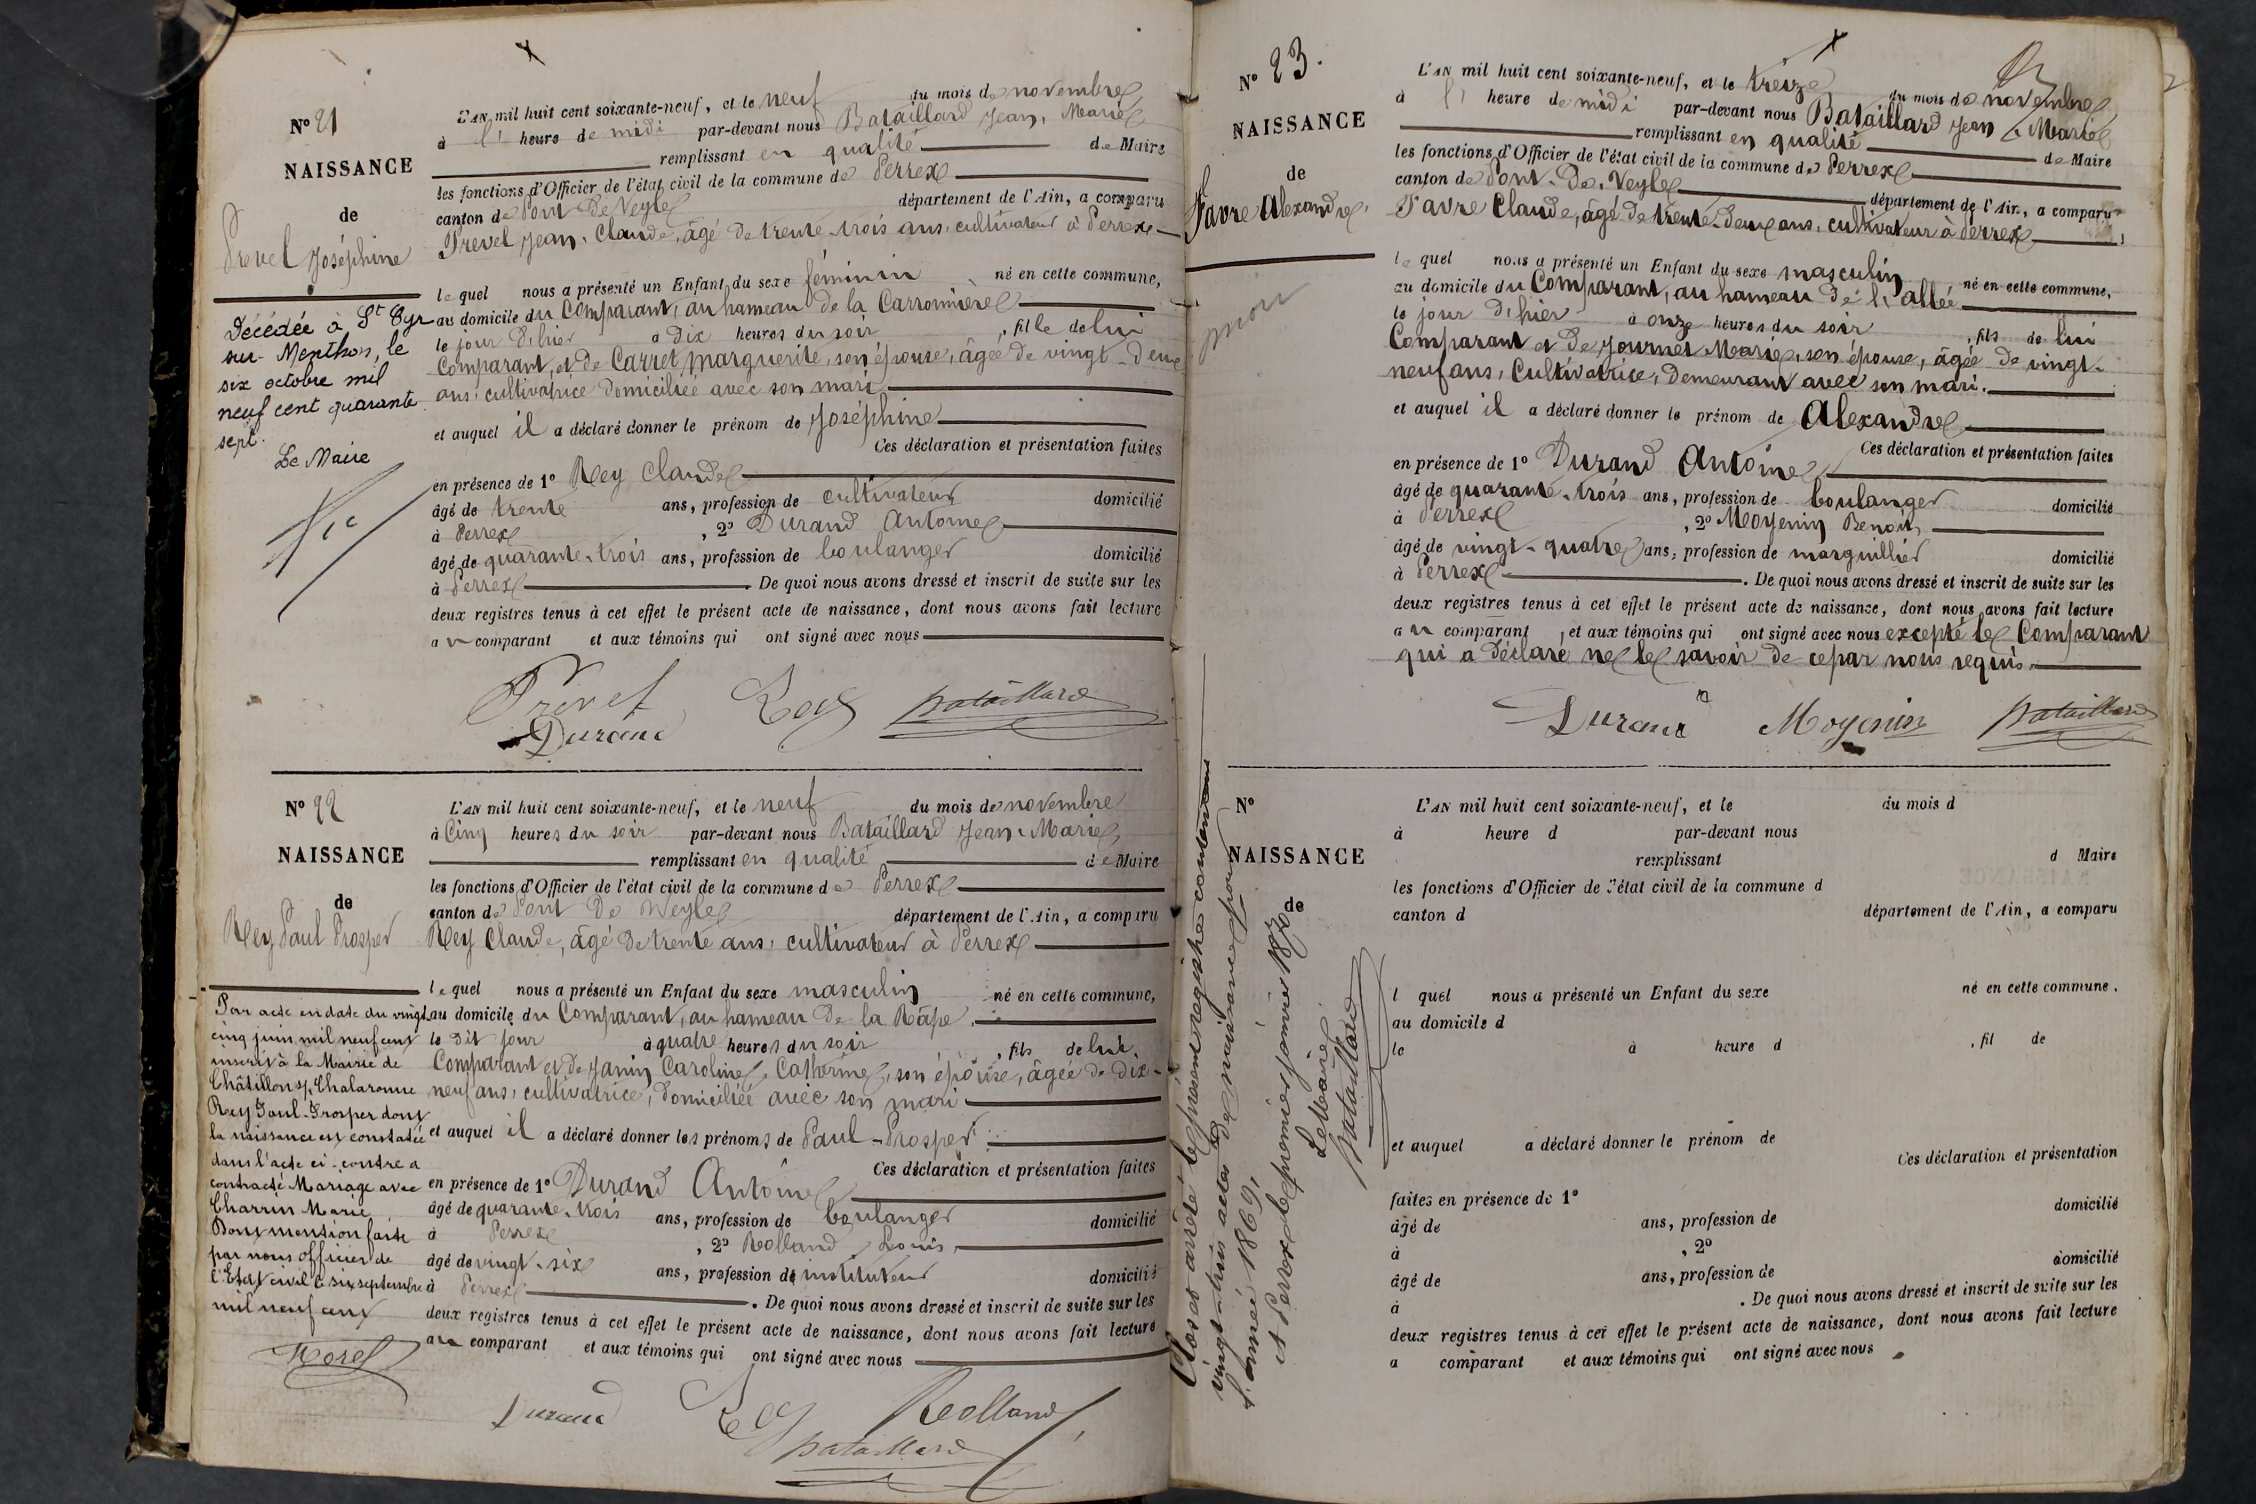 N° 21
NAISSANCE
de
Prevel Joséphine
Décédée à St Cyr
sur Menthon, le
six octobre mil
neuf cent quarante
sept.
Le Maire
L'AN mil huit cent soixante-neuf, et le neuf du mois de novembre
à l' heure de midi par-devant nous Bataillard Jean, Marie
remplissant en qualité de Maire
les fonctions d'Officier de l'état civil de la commune de Perrex
canton de Pont De Veyle département de l'Ain, a comparu
Prevel Jean, Claude, âgé de trente-trois ans, cultivateur à Perrex
le quel nous a présenté un Enfant du sexe féminin né en cette commune,
au domicile du Comparant, au hameau de la Carronnière
le jour d'hier à dix heures du soir, fille de lui
Comparant, et de Carret Marguerite, son épouse, âgée de vingt-deux
ans, cultivatrice domiciliée avec son mari
et auquel il a déclaré donner le prénom de Joséphine
Ces déclaration et présentation faites
en présence de 1° Rey Claude
âgé de trente ans, profession de cultivateur domicilié
à Perrex, 2° Durand Antoine
âgé de quarante-trois ans, profession de boulanger domicilié
à Perrex. De quoi nous avons dressé et inscrit de suite sur les
deux registres tenus à cet effet le présent acte de naissance, dont nous avons fait lecture
au comparant et aux témoins qui ont signé avec nous
Prevel Rey Bataillard
Durand
N° 22
NAISSANCE
de
Rey Paul Prosper
Par acte en date du vingt
cinq juin mil neuf cent
inscrit à la Mairie de
Châtillon s/ Chalaronne
Rey Paul-Prosper dont
la naissance est constatée
dans l'acte ci-contre a
contracté Mariage avec
Charrin Marie
Dont mention faite
par nous officier de
l'Etat civil le six septembre
mil neuf cent
Morel
L'AN mil huit cent soixante-neuf, et le neuf du mois de novembre
à Cinq heures du soir par-devant nous Bataillard Jean-Marie
remplissant en qualité de Maire
les fonctions d'Officier de l'état civil de la commune de Perrex
canton de Pont De Weyle département de l'Ain, a comparu
Rey Claude, âgé de trente ans, cultivateur à Perrex
le quel nous a présenté un Enfant du sexe masculin né en cette commune,
au domicile du Comparant, au hameau de la Râpe,
le dit jour à quatre heures du soir, fils de lui,
Comparant et de Janin Caroline, Catherine, son épouse, âgée de dix-
neuf ans, cultivatrice, domiciliée avec son mari
et auquel il a déclaré donner les prénoms de Paul-Prosper
Ces déclaration et présentation faites
en présence de 1° Durand Antoine
âgé de quarante-trois ans, profession de boulanger domicilié
à Perrex, 2° Rolland Louis
âgé de vingt-six ans, profession de instituteur domicilié
à Perrex. De quoi nous avons dressé et inscrit de suite sur les
deux registres tenus à cet effet le présent acte de naissance, dont nous avons fait lecture
au comparant et aux témoins qui ont signé avec nous
Durand Rey Rolland
Bataillard
N° 23.
NAISSANCE
de
Favre Alexandre.
mort
L'AN mil huit cent soixante-neuf, et le treize du mois de novembre
à l' heure de midi par-devant nous Bataillard Jean-Marie
remplissant en qualité de Maire
les fonctions d'Officier de l'état civil de la commune de Perrex
canton de Pont-De-Veyle département de l'Ain, a comparu
Favre Claude, âgé de trente-deux ans, cultivateur à Perrex
le quel nous a présenté un Enfant du sexe masculin né en cette commune,
au domicile du Comparant, au hameau de l'allée
le jour d'hier à onze heures du soir, fils de lui
Comparant et de Journet Marie, son épouse, âgée de vingt-
neuf ans, Cultivatrice, demeurant avec son mari.
et auquel il a déclaré donner le prénom de Alexandre
Ces déclaration et présentation faites
en présence de 1° Durand Antoine
âgé de quarante-trois ans, profession de boulanger domicilié
à Perrex, 2° Moyenin Benoit
âgé de vingt-quatre ans, profession de marguillier domicilié
à Perrex. De quoi nous avons dressé et inscrit de suite sur les
deux registres tenus à cet effet le présent acte de naissance, dont nous avons fait lecture
au comparant, et aux témoins qui ont signé avec nous excepté le Comparant
qui a déclaré ne le savoir de ce par nous requis.
Durand Moyenin Bataillard
Clos et arrêté le présent registre contenant
vingt-trois actes de naissance pour
l'année 1869,
et Perrex le premier janvier 1870
Le Maire,
Bataillard
N°
NAISSANCE
de
L'AN mil huit cent soixante-neuf, et le du mois d
à heure d par-devant nous
remplissant d Maire
les fonctions d'Officier de l'état civil de la commune d
canton d département de l'Ain, a comparu
l quel nous a présenté un Enfant du sexe né en cette commune.
au domicile d
le à heure d, fil de
et auquel a déclaré donner le prénom de
Ces déclaration et présentation
faites en présence de 1° domicilié
âgé de ans, profession de
à, 2° domicilié
âgé de ans, profession de
à. De quoi nous avons dressé et inscrit de suite sur les
deux registres tenus à cet effet le présent acte de naissance, dont nous avons fait lecture
a comparant et aux témoins qui ont signé avec nous